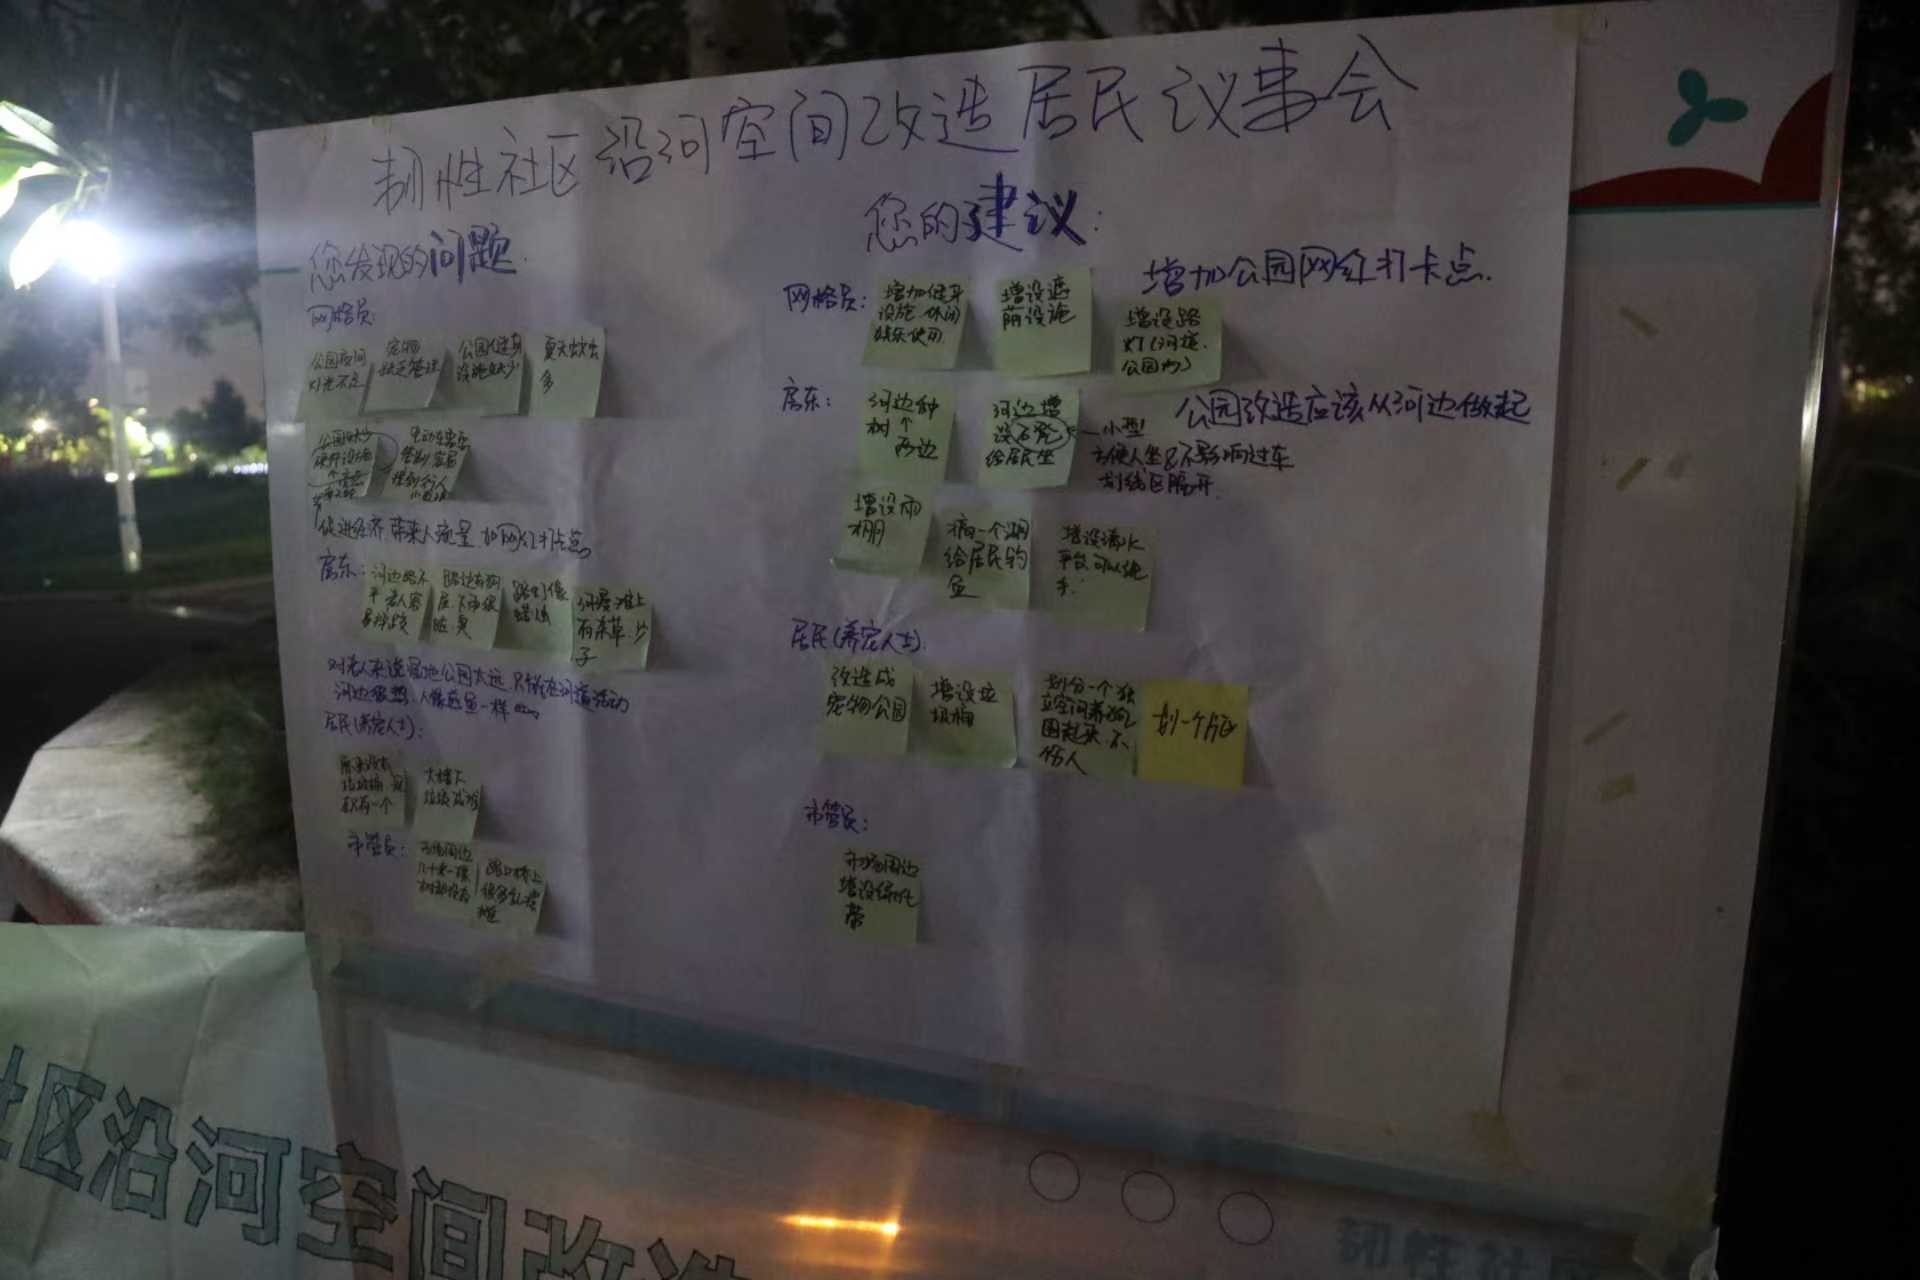 韧性社区沿河空间改造居民议事会
您发现的问题
网格员:
公园夜间
灯光不足
宠物
缺乏管理
公园健身
设施缺少
夏天蚊虫
多
促进经济,带来人流量,如网红打卡点。
房东:
河边路不
平,老人容
易摔跤
路边有狗
屎,下雨很
脏,臭
路灯像
蜡烛
河旁滩上
有杂草,沙
子
对老人来说湿地公园太远,只能在河道活动
居民(养宠人士):
市管员:
您的建议:
网格员:
增加健身
设施,休闲
娱乐使用
增设遮
荫设施
增设路
灯(河堤、
公园内)
增加公园网红打卡点.
房东:
河边种
树
两边
河边增
设石凳
给居民坐
小型
方便人坐&不影响过车
划线区隔开.
公园改造应该从河边做起
增设雨
棚
搞一个湖
给居民钓
鱼
增设清水
平台,可以洗
手.
居民(养宠人士):
改造成
宠物公园
增设垃
圾桶
划分一个独
立空间养狗,
围起来,不
伤人
划一个片区
市管员:
市场周边
增设绿化
带
社区沿河空间改造
韧性社区